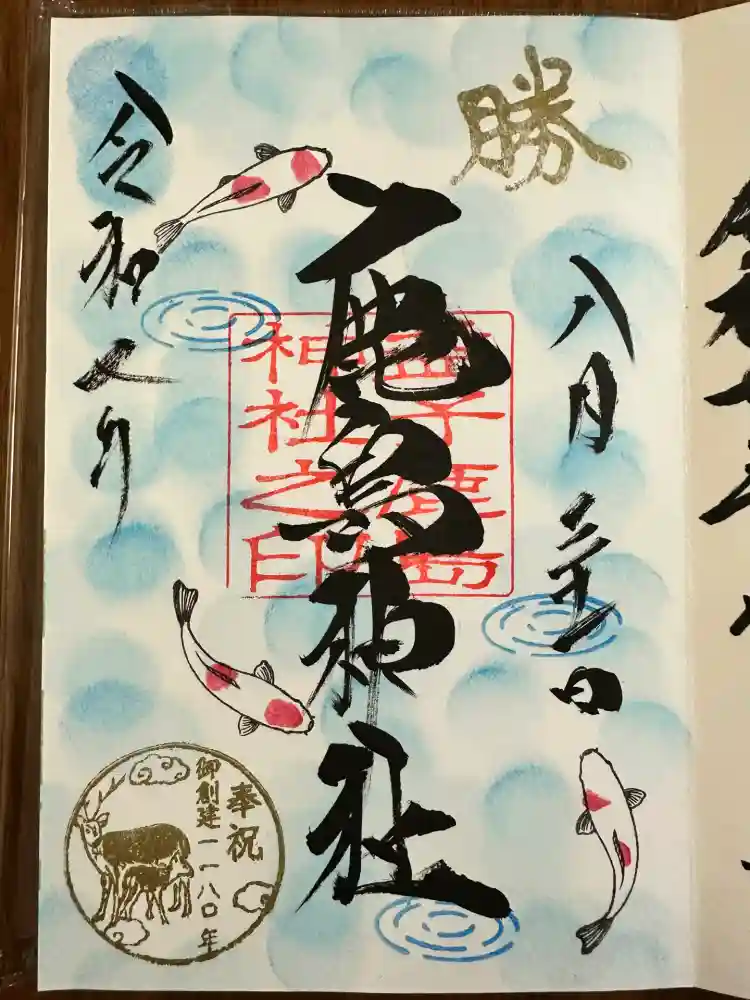 勝
八月
日
鹿島神社
益子鹿島
神社之印
令和
奉祝
御創建一一八〇年